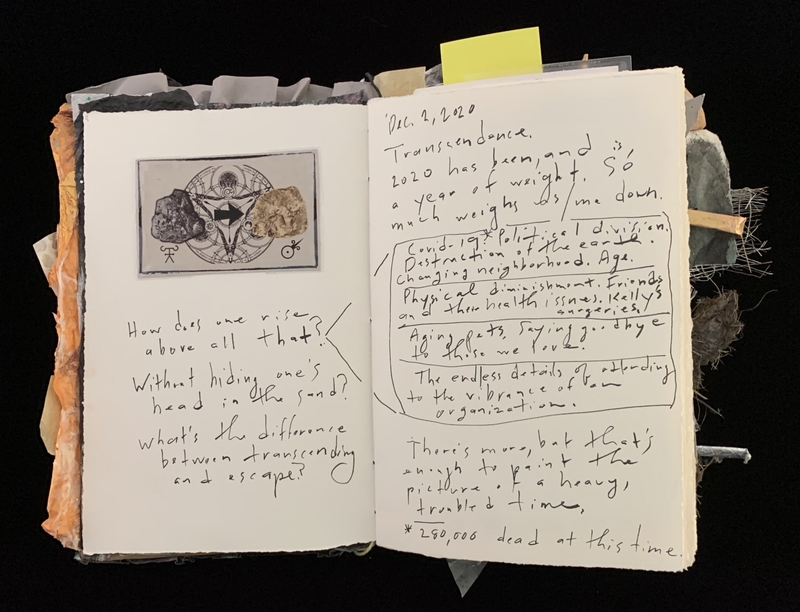 How does one rise
above all that?
Without hiding one's
head in the sand?
What's the difference
between transcending
and escape?
Dec. 2, 2020
Transcendance.
2020 has been, and is,
a year of weight. So
much weighs us/me down.
Covid-19.* Political division.
Destruction of the earth.
Changing neighborhood. Age.
Physical diminishment. Friends
and their health issues. Kelly's
surgeries.
Aging pets. Saying goodbye
to those we love.
The endless details of attending
to the vibrance of an
organization.
There's more, but that's
enough to paint the
picture of a heavy,
troubled time.
* 280,000 dead at this time.